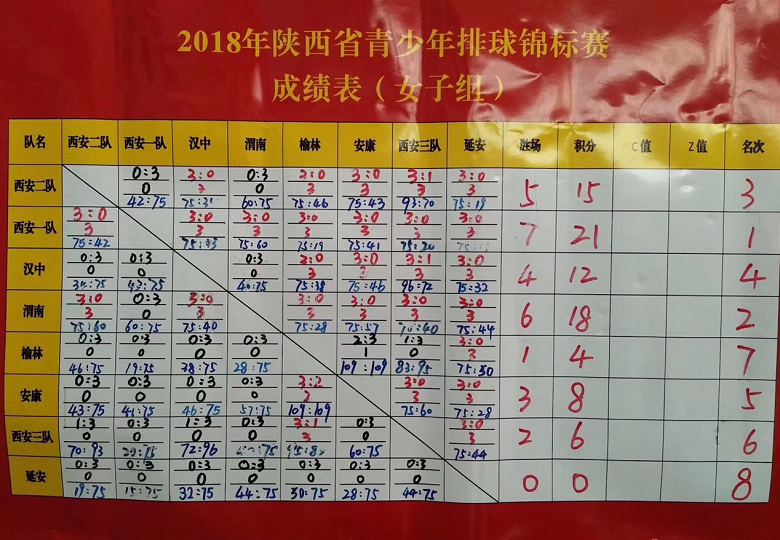 2018年陕西省青少年排球锦标赛
成绩表（女子组）
队名 西安二队 西安一队 汉中 渭南 榆林 安康 西安三队 延安 胜场 积分 C值 Z值 名次
0:3 3:0 0:3 3:0 3:0 3:1 3:0
西安二队 0 3 0 3 3 3 3 5 15 3
42:75 60:75 75:46 75:43 93:70 75:19
3:0 3:0 3:0 3:0 3:0 3:0 3:0
西安一队 3 3 3 3 3 3 3 7 21 1
75:42 75:60 75:19 75:41
0:3 0:3 0:3 3:0 3:0 3:1 3:0
汉中 0 0 0 3 3 3 3 4 12 4
40:75 75:38 75:46 96:72 75:32
3:0 0:3 3:0 3:0 3:0 3:0 3:0
渭南 3 0 3 3 3 3 3 6 18 2
75:60 60:75 75:40 75:28 75:57 75:44
0:3 0:3 0:3 0:3 2:3 1:3 3:0
榆林 0 0 0 0 1 0 3 1 4 7
46:75 19:75 38:75 28:75 109:109 83:95 75:30
0:3 0:3 0:3 0:3 3:2 3:0 3:0
安康 0 0 0 0 2 3 3 3 8 5
43:75 41:75 46:75 57:75 109:109 75:60 75:28
1:3 0:3 1:3 0:3 3:1 0:3 3:0
西安三队 0 0 0 0 3 0 3 2 6 6
70:93 72:96 60:75 75:44
0:3 0:3 0:3 0:3 0:3 0:3 0:3
延安 0 0 0 0 0 0 0 0 0 8
19:75 15:75 32:75 44:75 30:75 28:75 44:75